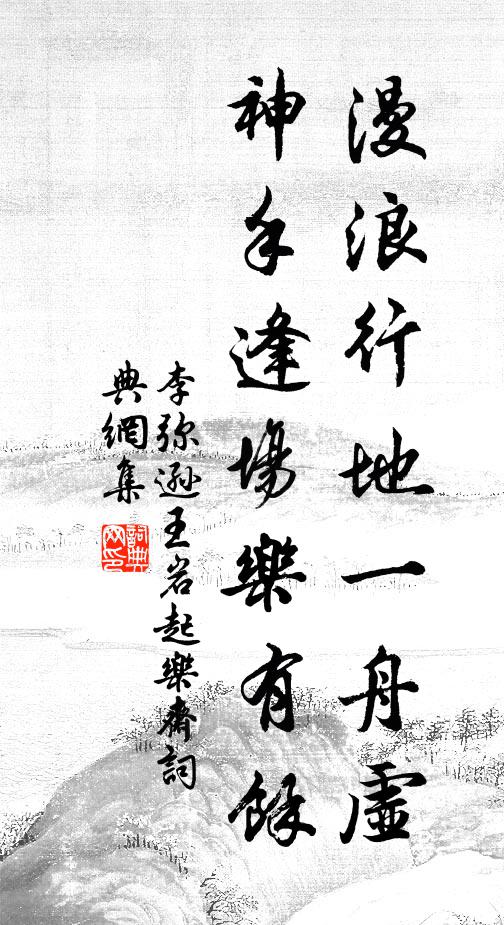 漫浪行地一舟虛
神手逢場樂有餘
李弥遜王岩起樂齋詞
典網集
詞典网印